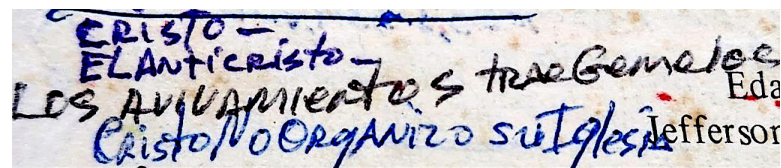 CRISTO –
EL ANTICRISTO –
LOS AVIVAMIENTOS trae Gemelos
Eda
CRISTO NO ORgANIZO su Iglesia
Jefferson